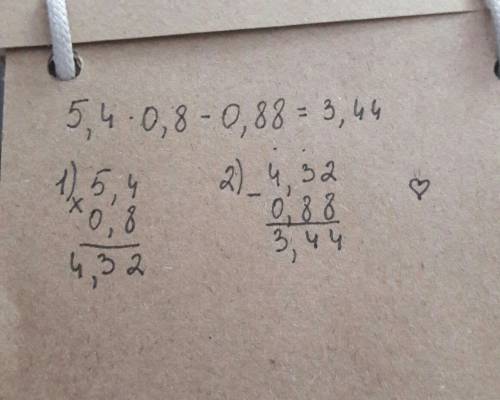 5,4 · 0,8 - 0,88 = 3,44
1) 5,4
× 0,8
4,32
2) - 4,32
0,88
3,44
♡